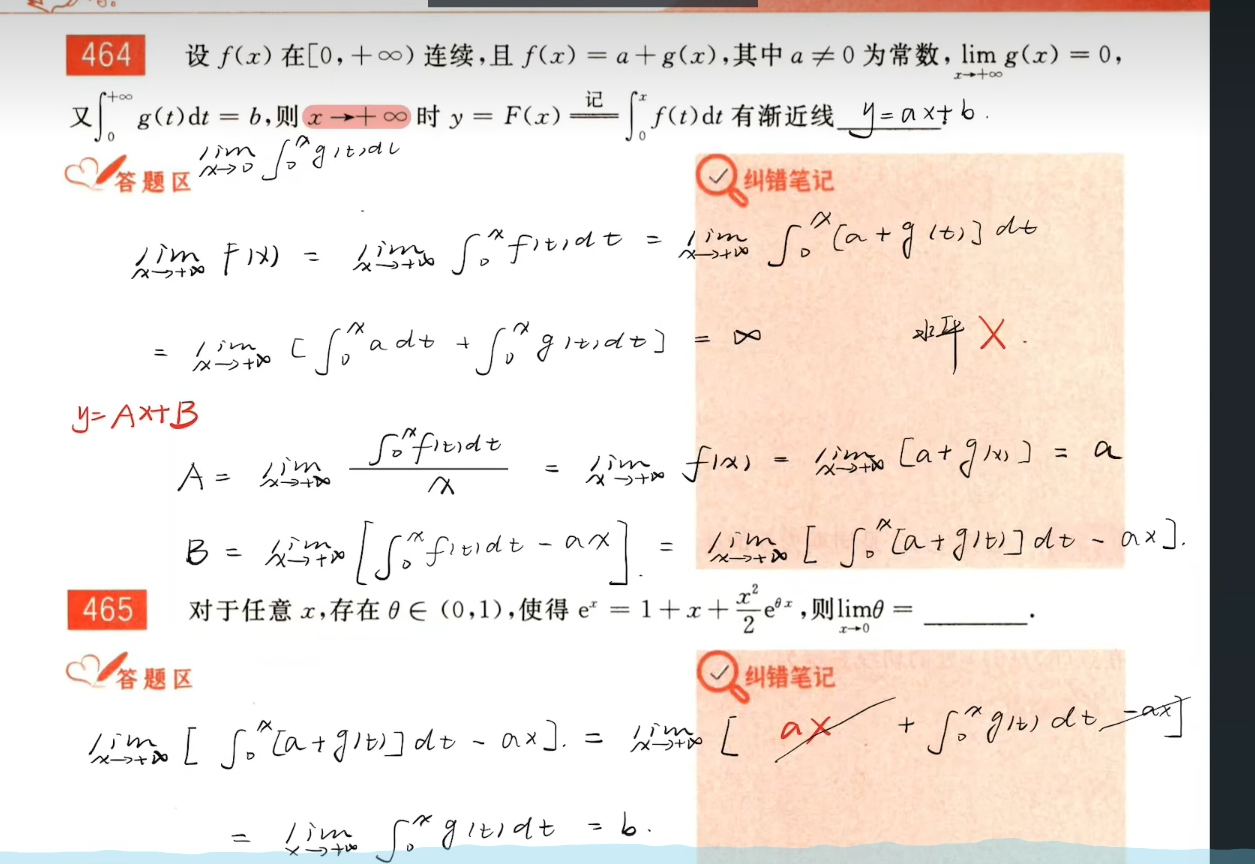 464 设 f(x) 在[0,+∞) 连续,且 f(x) = a + g(x),其中 a ≠ 0 为常数, lim_{x→+∞} g(x) = 0,
又∫_0^{+∞} g(t)dt = b,则 x→+∞ 时 y = F(x) ≝(记) ∫_0^x f(t)dt 有渐近线 y=ax+b .
lim_{x→0} ∫_0^x g(t)dt
答题区 纠错笔记
lim_{x→+∞} F(x) = lim_{x→+∞} ∫_0^x f(t)dt = lim_{x→+∞} ∫_0^x [a+g(t)] dt
= lim_{x→+∞} [∫_0^x a dt + ∫_0^x g(t)dt] = ∞ 水平 X .
y=Ax+B
A = lim_{x→+∞} \frac{∫_0^x f(t)dt}{x} = lim_{x→+∞} f(x) = lim_{x→+∞} [a+g(x)] = a
B = lim_{x→+∞} [∫_0^x f(t)dt - ax] . = lim_{x→+∞} [∫_0^x [a+g(t)] dt - ax].
465 对于任意 x,存在 θ ∈ (0,1),使得 e^x = 1 + x + \frac{x^2}{2}e^{θx},则 lim_{x→0} θ = ______.
答题区 纠错笔记
lim_{x→+∞} [∫_0^x [a+g(t)] dt - ax]. = lim_{x→+∞} [ax + ∫_0^x g(t) dt - ax]
= lim_{x→+∞} ∫_0^x g(t)dt = b.